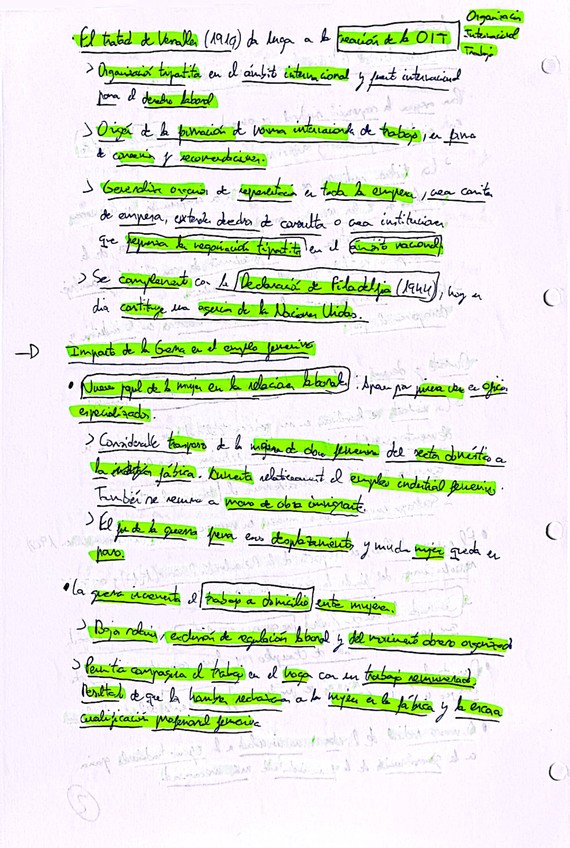 El tratad de Versalles (1919) da luga a la creación de la OIT
Organización
Internacional
Trabajo
> Organización tripatita en el ámbito internacional y internacional
para el derecho laboral
> Orign de la formación de norma internacionale de trabajo, en forma
de convenios y recomendaciones.
> Generaliza organos de representación en toda la empresa, crea comites
de empresa, extende derechos de consulta o crea institucione
que la negociación tripatita en el ámbito nacional
> Se complementa con la Declaración de Filadelfia (1944), hoy en
dia constituye una agencia de la Naciones Unidas.
Impacto de la Guerra en el empleo femenino
• Nuevo papel de la mujer en la relacion laborale: Apare por primera vez en oficios
especializados.
> Considerable traspaso de la de obra femenina del sector doméstico a
la fábrica. Aumenta relativament el empleo industrial femenino.
También se recurre a mano de obra inmigrante.
> El fin de la guerra frena esos desplazamientos y mucha mujer queda en
paro.
• La guerra incrementa el trabajo a domicilio entre mujeres.
> Bajo salario, exclusión de regulación laboral y del movimiento obrero organizado
> Permitía compagina el trabajo en el hoga con un trabajo remunerado.
Resultado de que la hombre rechazaran a la mujer en la fábrica y la escasa
cualificación profesional femenina